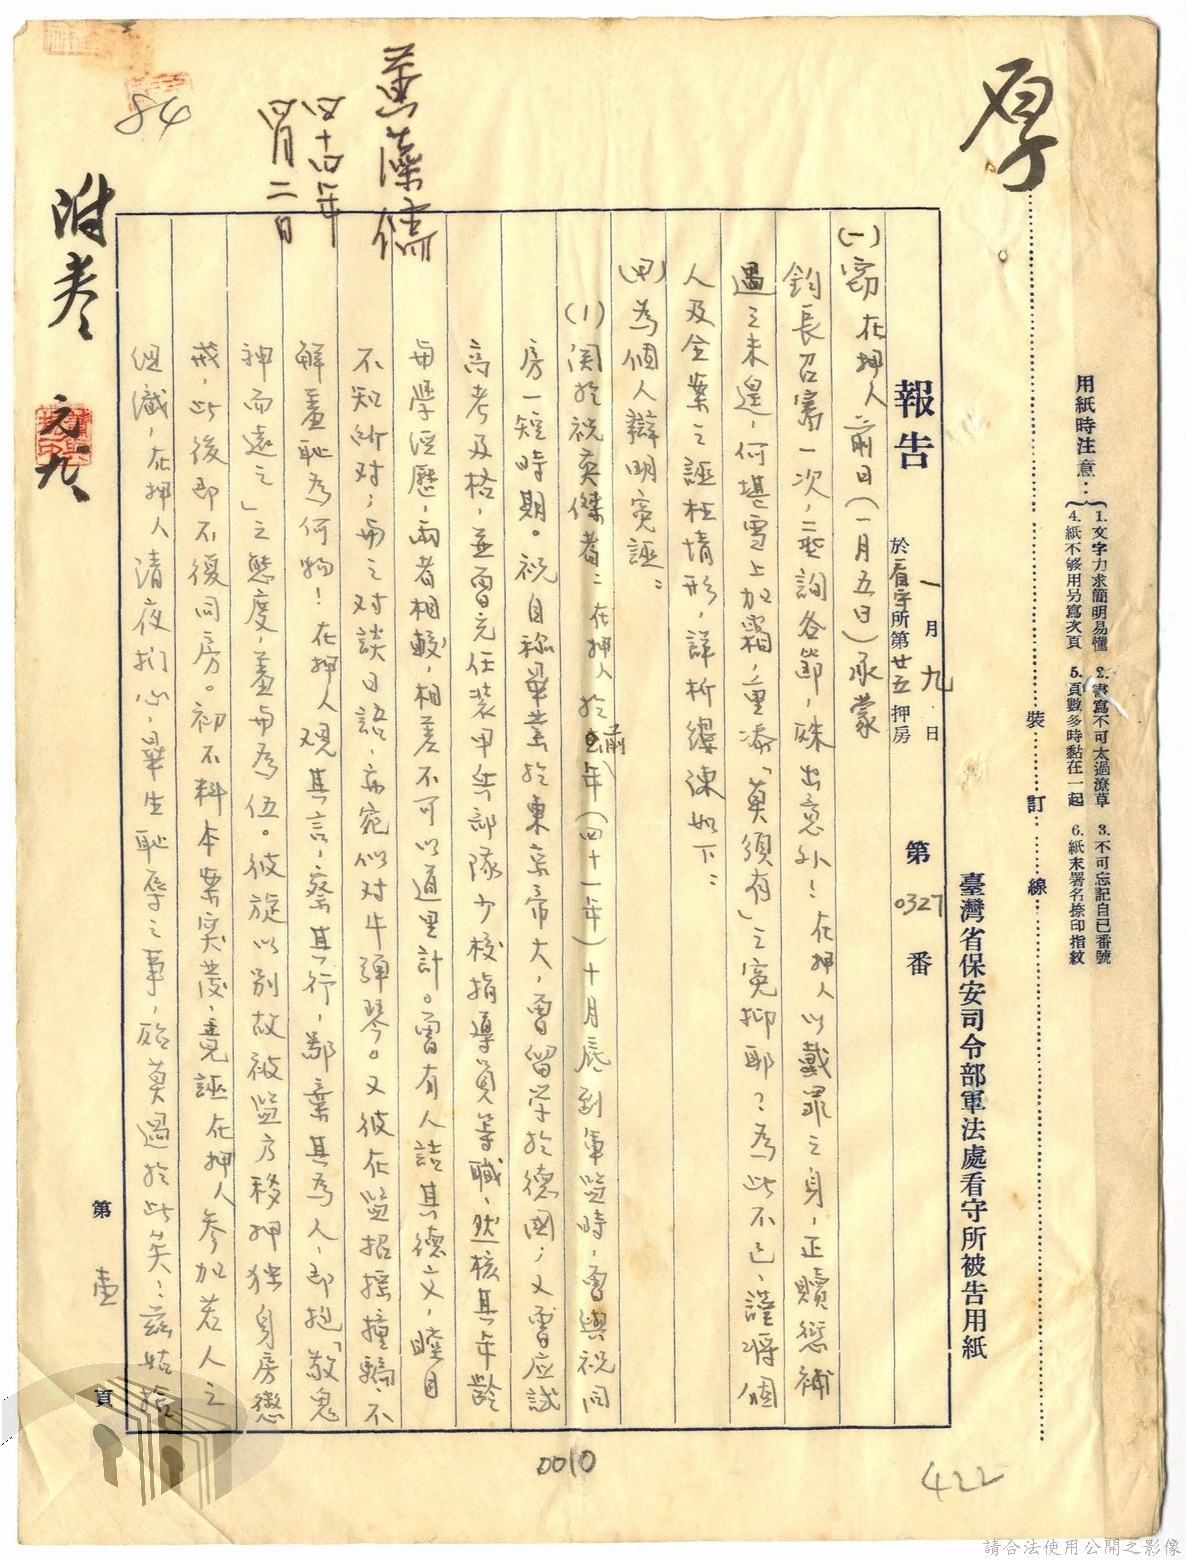 厚
用紙時注意：
1.文字力求簡明易懂
2.書寫不可太過潦草
3.不可忘記自己番號
4.紙不够用另寫次頁
5.頁數多時黏在一起
6.紙末署名捺印指紋
裝 訂 線
臺灣省保安司令部軍法處看守所被告用紙
報告
一月九日
於看守所第廿五押房
第0327番
(一)竊在押人前日(一月五日)承蒙
鈞長召審一次，訊詢各節，殊出意外！在押人以戴罪之身，正贖愆補
過之未遑，何堪雪上加霜，重添「莫須有」之冤抑耶？為此不已，謹將個
人及全案之誣枉情形，詳析縷陳如下：
(甲)為個人辯明冤誣：
(1)関於祝英傑者：在押人於前年(四十一年)十月底到軍監時，曾與祝同
房一短時期。祝自称畢業於東京帝大，曾留学於德國；又曾应試
高考及格，並曾充任裝甲兵部隊少校指導員等職，然核其年齡
与學經歷，兩者相較，相差不可以道里計。曾有人詰其德文，瞠目
不知所对；与之对談日語，亦宛似对牛弹琴。又彼在監招搖撞騙，不
解羞恥為何物！在押人观其言，察其行，鄙棄其為人，即抱「敬鬼
神而遠之」之態度，羞与為伍。彼旋以别故被監方移押独身房懲
戒，此後即不復同房。初不料本案突發，竟誣在押人參加若人之
組織，在押人清夜捫心，畢生恥辱之事，殆莫過於此矣：茲姑捨
第 壹 頁
四十四年
四月二日
84
附卷
元九
0010
422
請合法使用公開之影像